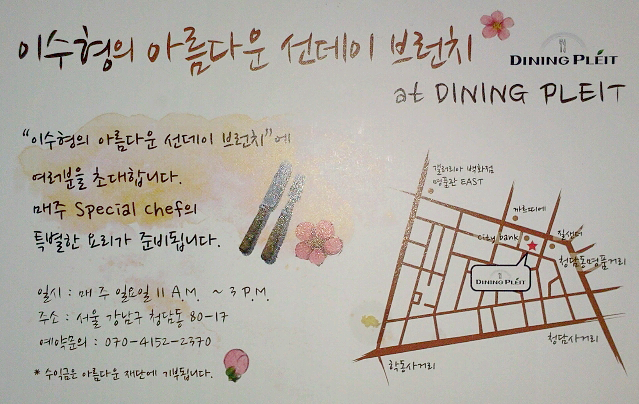 이수형의 아름다운 선데이 브런치
DINING PLEIT
at DINING PLEIT
"이수형의 아름다운 선데이 브런치"에
여러분을 초대합니다.
매주 Special chef의
특별한 요리가 준비됩니다.
일시 : 매주 일요일 11 A.M. ~ 3 P.M.
주소 : 서울 강남구 청담동 80-17
예약문의 : 070-4152-2370
* 수익금은 아름다운 재단에 기부됩니다.
갤러리아 백화점
명품관 EAST
까르띠에
city bank
질샌더
청담동명품거리
DINING PLEIT
청담사거리
학동사거리